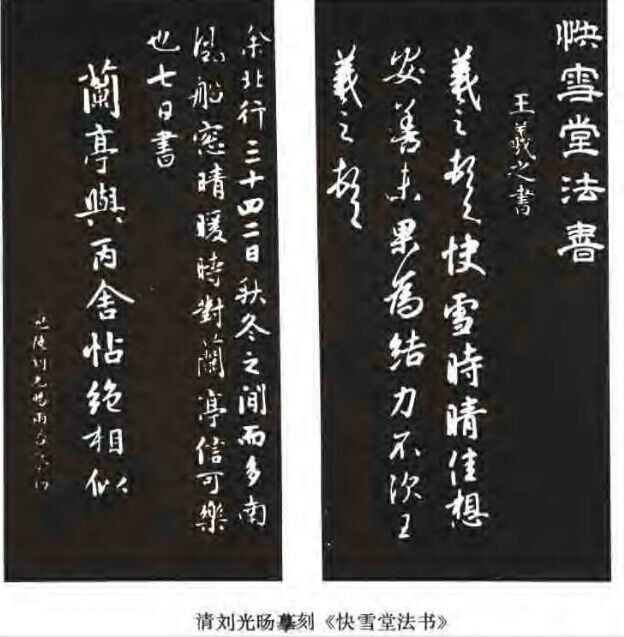 快雪堂法書
王羲之書
羲之頓首快雪時晴佳想
安善未果為結力不次王
羲之頓首
余北行三十四二日秋冬之間而多南
風船窓晴暖時對蘭亭信可樂
也七日書
蘭亭與丙舍帖絶相似
清刘光旸摹刻《快雪堂法书》